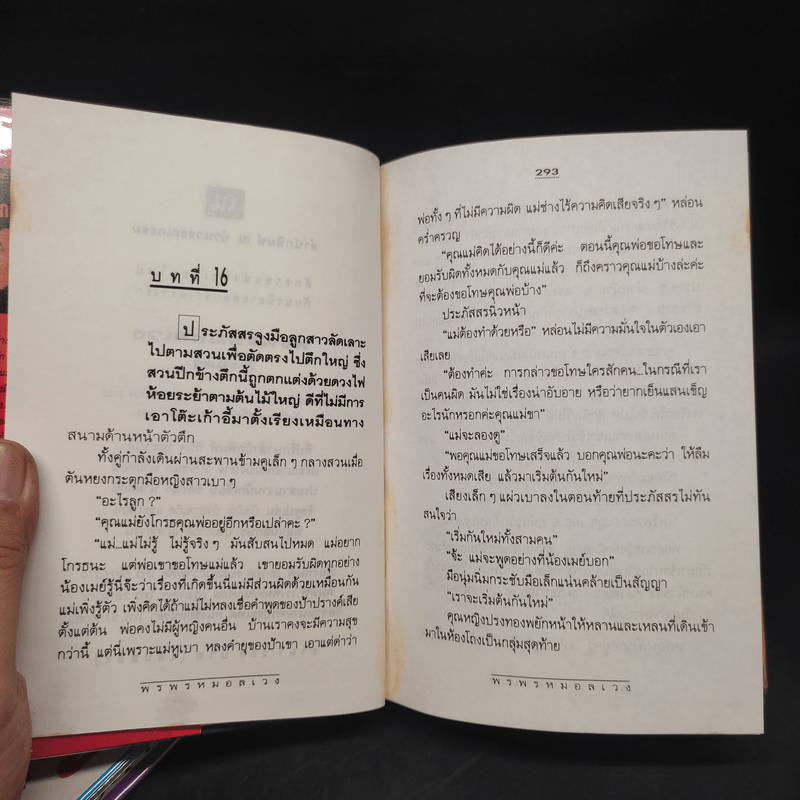 บทที่ 16
ประภัสสรจูงมือลูกสาวลัดเลาะ
ไปตามสวนเพื่อตัดตรงไปตึกใหญ่ ซึ่ง
สวนปีกข้างตึกนี้ถูกตกแต่งด้วยดวงไฟ
ห้อยระย้าตามต้นไม้ใหญ่ ดีที่ไม่มีการ
เอาโต๊ะเก้าอี้มาตั้งเรียงเหมือนทาง
สนามด้านหน้าตัวตึก
ทั้งคู่กำลังเดินผ่านสะพานข้ามคูเล็กๆ กลางสวนเมื่อ
ตันหยงกระตุกมือหญิงสาวเบาๆ
“อะไรลูก ?”
“คุณแม่ยังโกรธคุณพ่ออยู่อีกหรือเปล่าคะ ?”
“แม่...แม่ไม่รู้ ไม่รู้จริงๆ มันสับสนไปหมด แม่อยาก
โกรธนะ แต่พ่อเขาขอโทษแม่แล้ว เขายอมรับผิดทุกอย่าง
น้องเมย์รู้นี่จ๊ะว่าเรื่องที่เกิดขึ้นนี่แม่มีส่วนผิดด้วยเหมือนกัน
แม่เพิ่งรู้ตัว เพิ่งคิดได้ถ้าแม่ไม่หลงเชื่อคำพูดของป้าปรางค์เสีย
ตั้งแต่ต้น พ่อคงไม่มีผู้หญิงคนอื่น บ้านเราคงจะมีความสุข
กว่านี้ แต่นี่เพราะแม่หูเบา หลงคำยุของป้าเขา เอาแต่ด่าว่า
พรพรหมอลเวง
293
พ่อทั้งๆ ที่ไม่มีความผิด แม่ช่างไร้ความคิดเสียจริงๆ” หล่อน
คร่ำครวญ
“คุณแม่คิดได้อย่างนี้ก็ดีค่ะ ตอนนี้คุณพ่อขอโทษและ
ยอมรับผิดทั้งหมดกับคุณแม่แล้ว ก็ถึงคราวคุณแม่บ้างล่ะค่ะ
ที่จะต้องขอโทษคุณพ่อบ้าง”
ประภัสสรนิ่วหน้า
“แม่ต้องทำด้วยหรือ” หล่อนไม่มีความมั่นใจในตัวเองเอา
เสียเลย
“ต้องทำค่ะ การกล่าวขอโทษใครสักคน...ในกรณีที่เรา
เป็นคนผิด มันไม่ใช่เรื่องน่าอับอาย หรือว่ายากเย็นแสนเข็ญ
อะไรนักหรอกค่ะคุณแม่ขา”
“แม่จะลองดู”
“พอคุณแม่ขอโทษเสร็จแล้ว บอกคุณพ่อนะคะว่า ให้ลืม
เรื่องทั้งหมดเสีย แล้วมาเริ่มต้นกันใหม่”
เสียงเล็กๆ แผ่วเบาลงในตอนท้ายที่ประภัสสรไม่ทัน
สนใจว่า
“เริ่มกันใหม่ทั้งสามคน”
“จ้ะ แม่จะพูดอย่างที่น้องเมย์บอก”
มือนุ่มนิ่มกระชับมือเล็กแน่นคล้ายเป็นสัญญา
“เราจะเริ่มต้นกันใหม่”
คุณหญิงปรงทองพยักหน้าให้หลานและเหลนที่เดินเข้า
มาในห้องโถงเป็นกลุ่มสุดท้าย
พรพรหมอลเวง